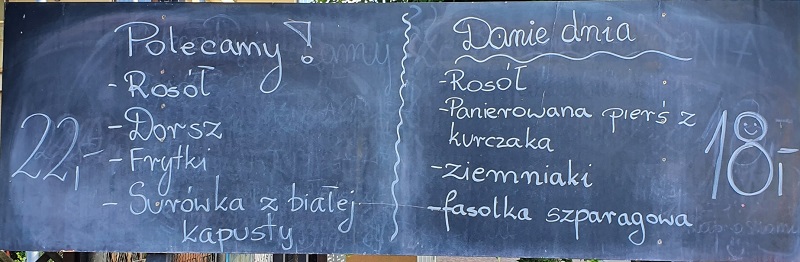 Polecamy!
- Rosół
- Dorsz
- Frytki
- Surówka z białej
kapusty
22,-
Danie dnia
- Rosół
- Panierowana pierś z
kurczaka
- ziemniaki
- fasolka szparagowa
18,-